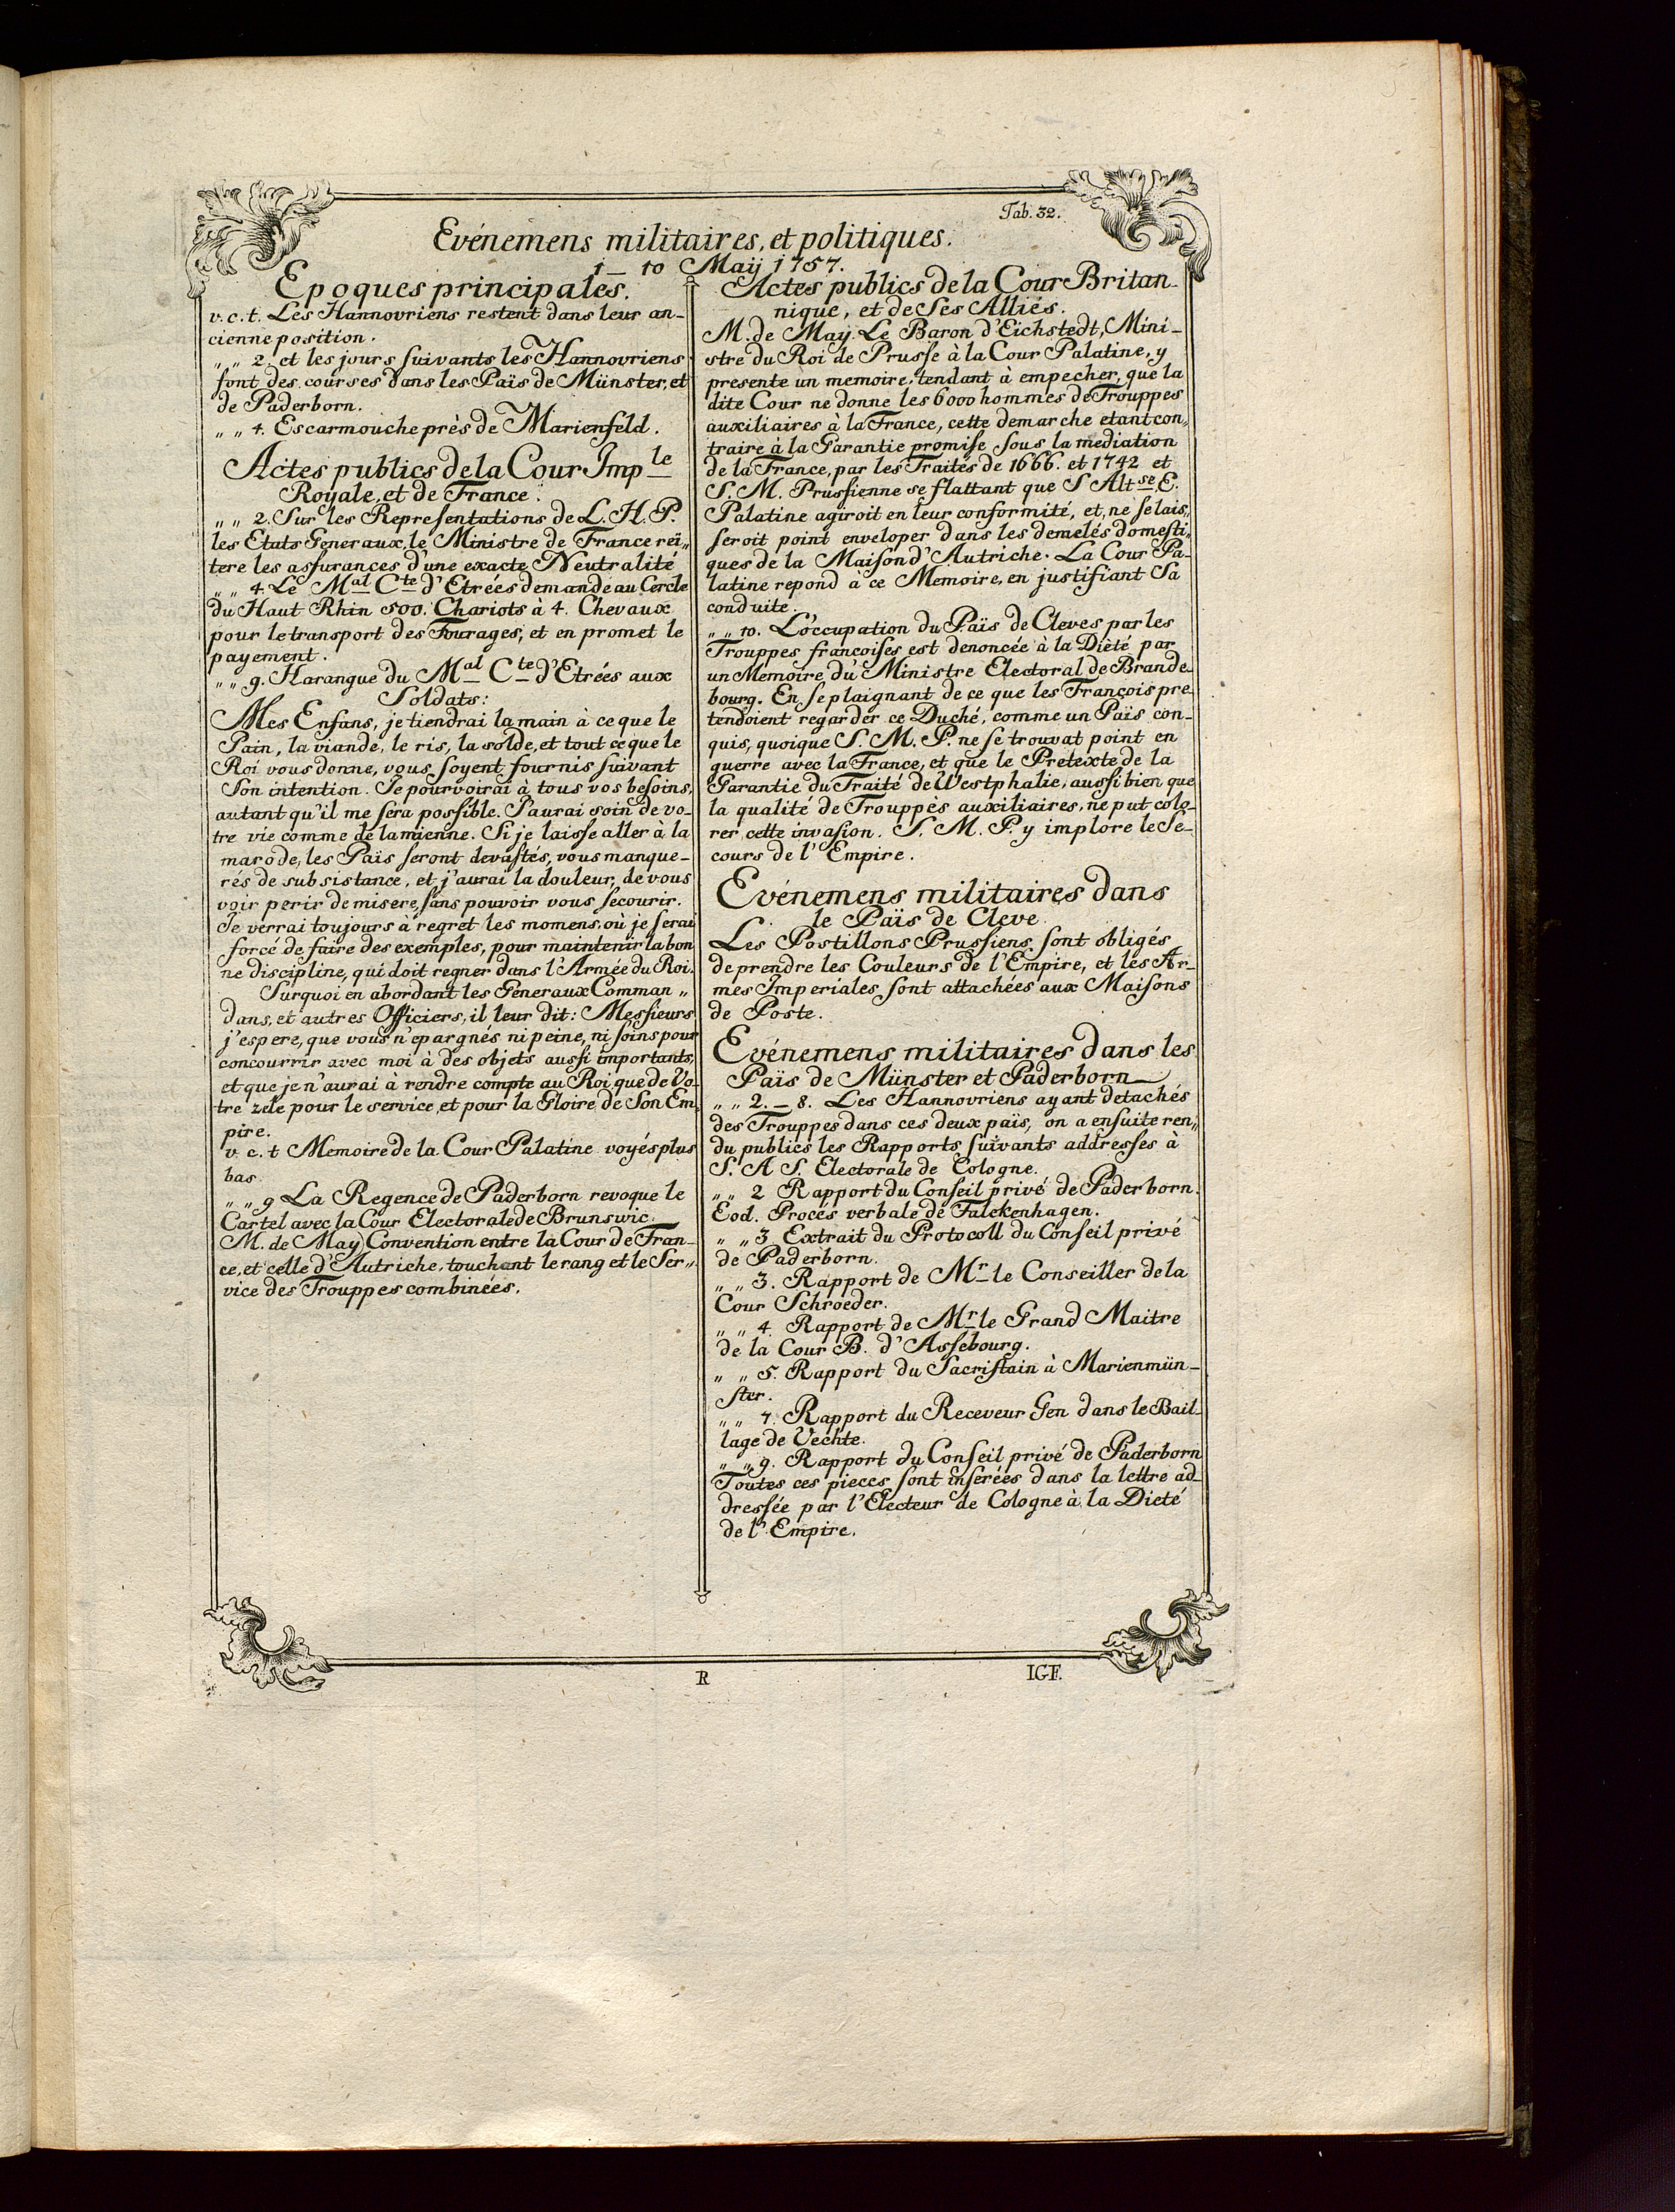 Tab. 32.
Evénemens militaires, et politiques.
1 — 10 Maÿ 1757.
Epoques principales.
v. c. t. Les Hannovriens restent dans leur an-
cienne position.
„ „ 2. et les jours suivants les Hannovriens
font des courses dans les Païs de Münster, et
de Paderborn.
„ „ 4. Escarmouche près de Marienfeld.
Actes publics de la Cour Imp le
Royale, et de France.
„ „ 2. Sur les Representations de L. H. P.
les Etats Generaux, le Ministre de France reï„
tere les assurances d'une exacte Neutralité
„ „ 4. Le Mal Cte d'Etrées demande au Cercle
du Haut Rhin 500. Chariots à 4. Chevaux
pour le transport des Fourages, et en promet le
payement.
„ „ 9. Harangue du Mal Cte d'Etrées aux
Soldats:
Mes Enfans, je tiendrai la main à ce que le
Pain, la viande, le ris, la solde, et tout ce que le
Roi vous donne, vous soyent fournis suivant
Son intention. Je pourvoirai à tous vos besoins,
autant qu'il me sera possible. J'aurai soin de vo-
tre vie comme de la mienne. Si je laisse aller à la
marode, les Païs seront devastés, vous manque-
rés de subsistance, et j'aurai la douleur, de vous
voir perir de misere, sans pouvoir vous secourir.
Je verrai toujours à regret les momens, où je serai
forcé de faire des exemples, pour maintenir la bon
ne discipline, qui doit regner dans l'Armée du Roi.
Surquoi en abordant les Generaux Comman „
dans, et autres Officiers, il leur dit: Messieurs
j'espere, que vous n'epargnés ni peine, ni soins pour
concourrir avec moi à des objets aussi importants,
et que je n'aurai à rendre compte au Roi, que de Vo-
tre zele pour le service, et pour la Gloire de Son Em„
pire.
v. c. t Memoire de la Cour Palatine voyés plus
bas
„ „ 9 La Regence de Paderborn revoque le
Cartel avec la Cour Electorale de Brunswic.
M. de May Convention entre la Cour de Fran-
ce, et celle d'Autriche, touchant le rang et le Ser„
vice des Trouppes combinées.
Actes publics de la Cour Britan-
nique, et de Ses Alliés.
M. de May. Le Baron d'Eichstedt, Mini-
stre du Roi de Prusse à la Cour Palatine, y
presente un memoire, tendant à empecher, que la
dite Cour ne donne les 6000 hommes de Trouppes
auxiliaires à la France, cette demarche etant con„
traire à la Garantie promise sous la mediation
de la France, par les Traités de 1666. et 1742 et
S. M. Prussienne se flattant que S Altse. E.
Palatine agiroit en leur conformité, et, ne se lais„
seroit point enveloper dans les demelés domesti„
ques de la Maison d'Autriche. La Cour Pa-
latine repond à ce Memoire, en justifiant Sa
conduite.
„ „ 10. L'occupation du Païs de Cleves par les
Trouppes françoises est denoncée à la Dièté par
un Memoire du Ministre Electoral de Brande-
bourg. En se plaignant de ce que les François pre-
tendoient regarder ce Duché, comme un Païs con-
quis, quoique S. M. P. ne se trouvat point en
guerre avec la France, et que le Pretexte de la
Garantie du Traité de Westphalie, aussi bien que
la qualité de Trouppes auxiliaires, ne put colo-
rer cette invasion. S. M. P. y implore le Se-
cours de l'Empire.
Evénemens militaires dans
le Païs de Cleve
Les Postillons Prussiens sont obligés
de prendre les Couleurs de l'Empire, et les Ar-
mes Imperiales sont attachées aux Maisons
de Poste.
Evénemens militaires dans les
Païs de Münster et Paderborn
„ „ 2. — 8. Les Hannovriens ayant detachés
des Trouppes dans ces deux païs, on a ensuite ren„
du publics les Rapports suivants addresses à
S. A S. Electorale de Cologne.
„ „ 2 Rapport du Conseil privé de Paderborn.
Eod. Procés verbale de Falckenhagen.
„ „ 3 Extrait du Protocoll du Conseil privé
de Paderborn.
„ „ 3. Rapport de Mr le Conseiller de la
Cour Schroeder.
„ „ 4. Rapport de Mr le Grand Maitre
de la Cour B. d'Assebourg.
„ „ 5. Rapport du Sacristain à Marienmün-
ster.
„ „ 7. Rapport du Receveur Gen dans le Bail-
lage de Vechte.
„ „ 9. Rapport du Conseil privé de Paderborn
Toutes ces pieces sont inserées dans la lettre ad-
dressée par l'Electeur de Cologne à la Dieté
de l'Empire.
R
I.G.F.